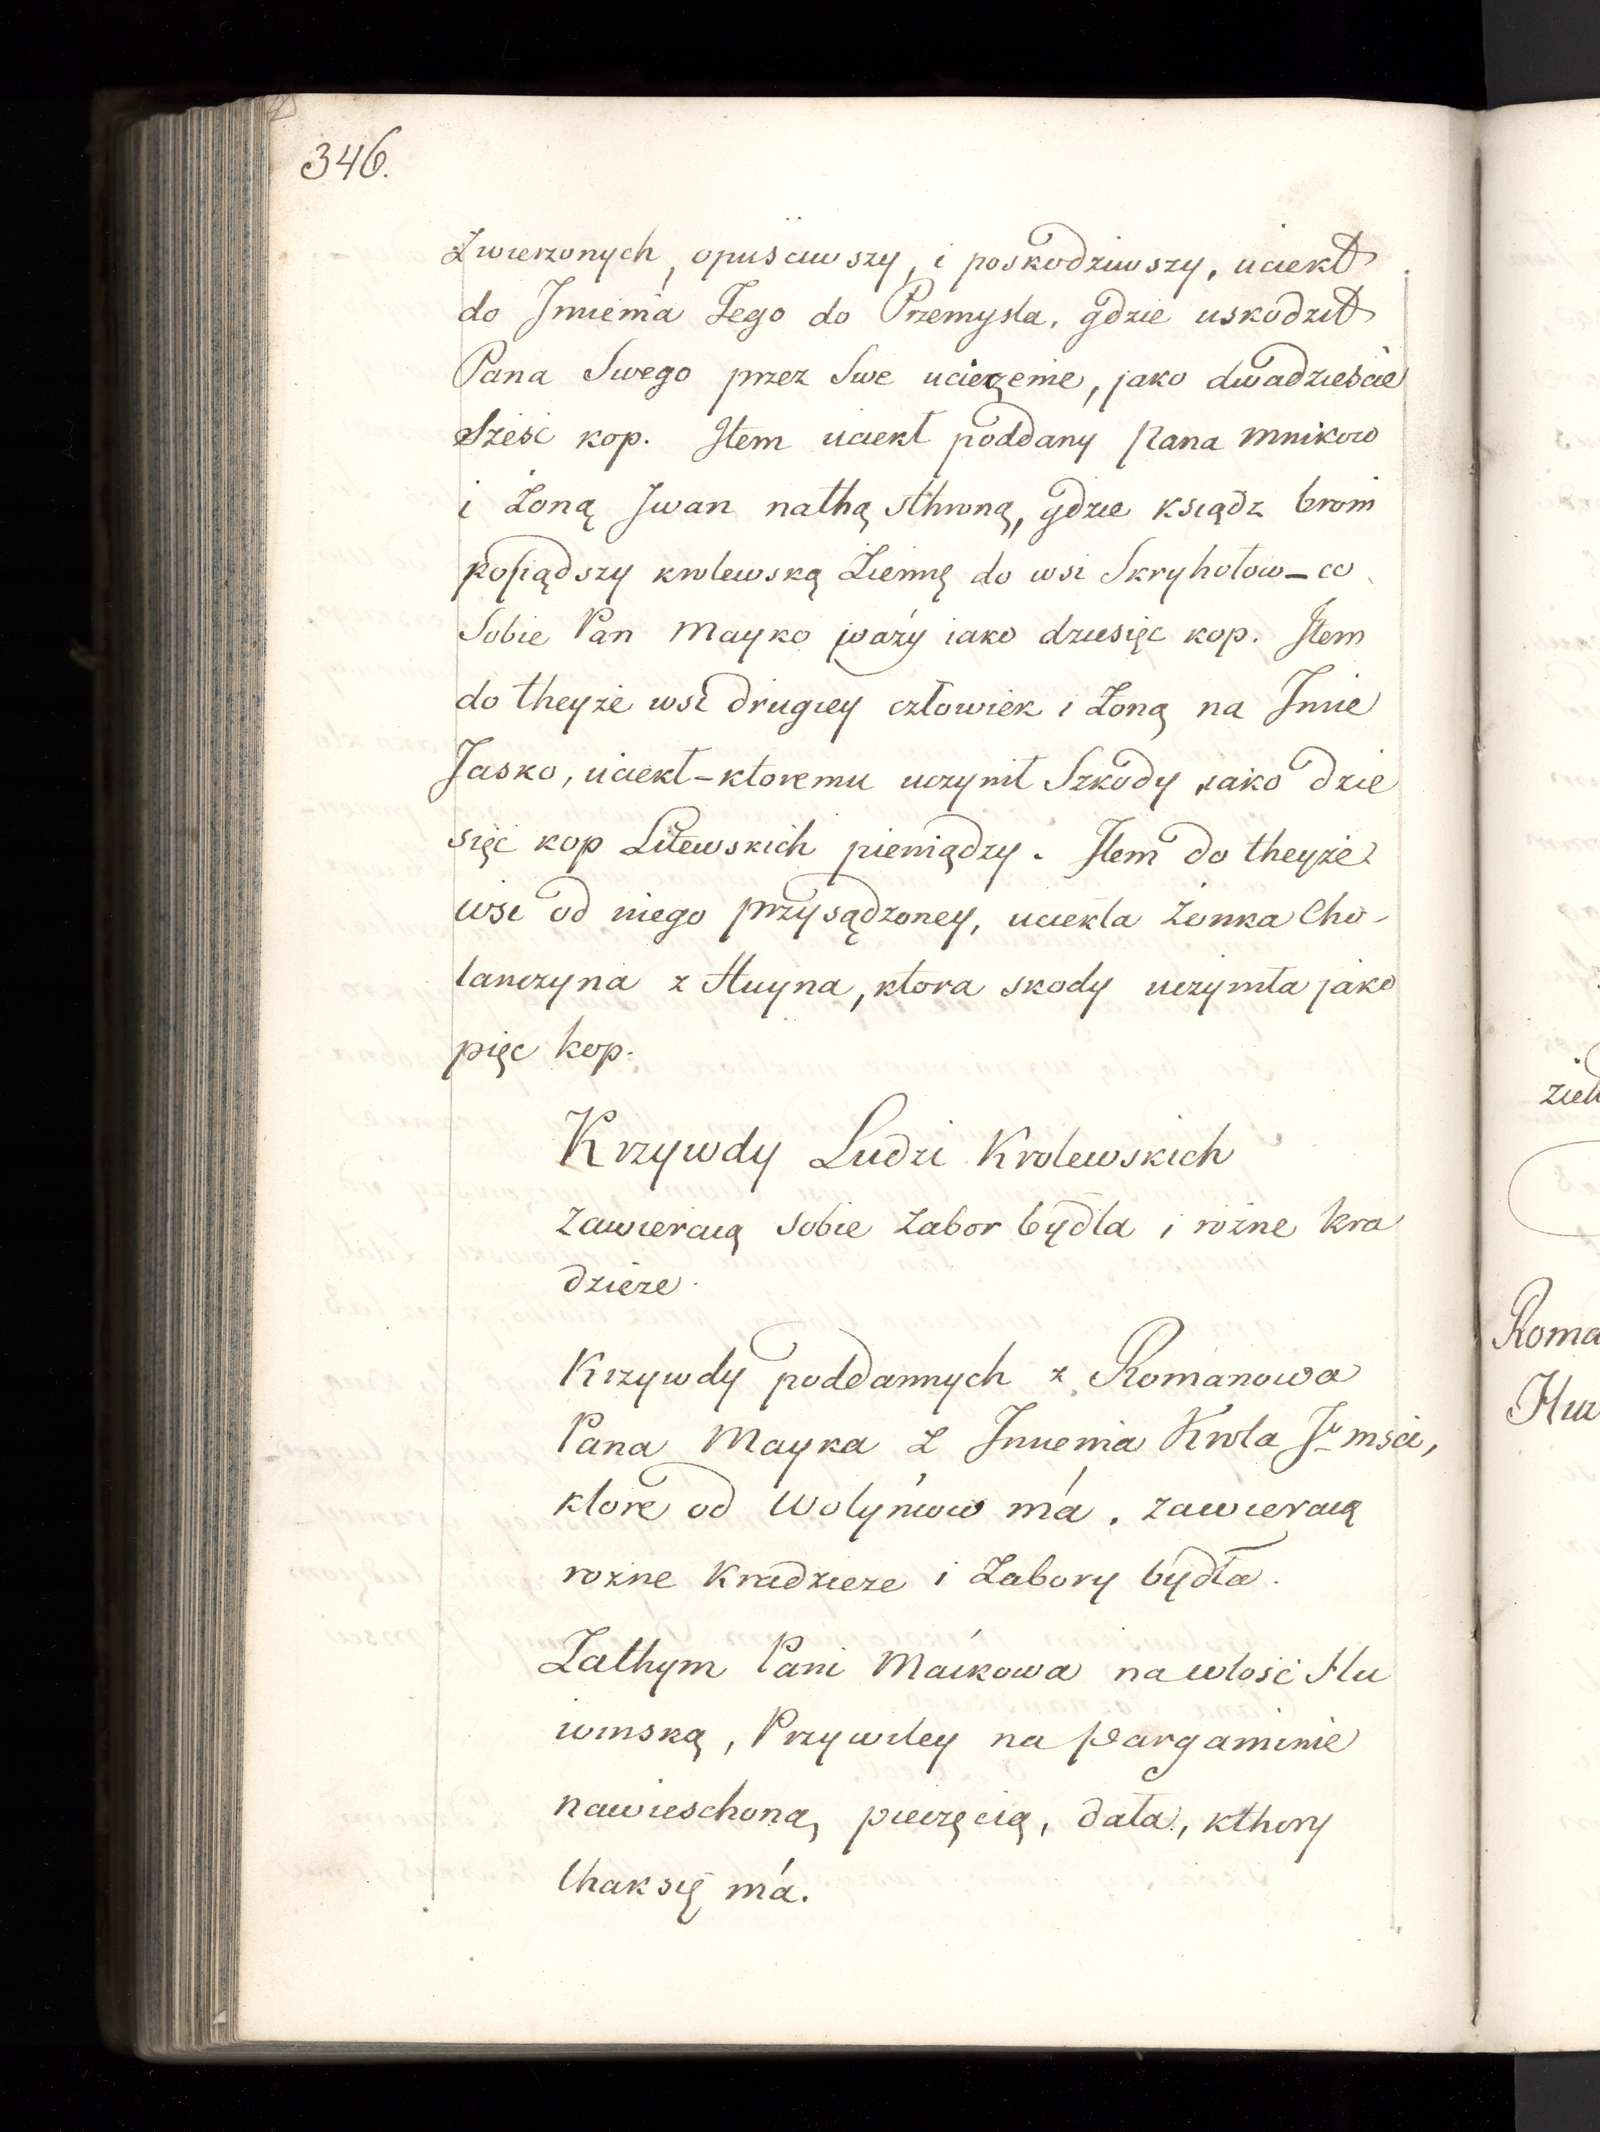 346.
Zwierzonych, opuściwszy, i poskodziwszy, uciekł
do Jmienia Tego do Przemysla, gdzie uskodził
Pana Swego przez Swe uciezenie, jako dwadzieście
Sześc kop. Jtem uciekł poddany Pana mnikow
i Żoną Jwan nathą sthroną, gdzie ksiądz broni
posiądszy krolewską Ziemię do wsi Skryhołow_co
Sobie Pan Mayko waży iako dziesięc kop. Jtem
do theyże wsi drugiey człowiek i Żoną na Jmie
Jasko, uciekł-ktoremu uczynił Szkody iako dzie
sięc kop Litewskich pieniądzy. Jtem do theyże
wsi od niego przysądzoney, uciekła żonka Cho-
lanczyna z Huyna, ktora skody uczyniła jako
pięc kop.
Krzywdy Ludzi Krolewskich
zawieraią sobie zabor bydla i rożne kra
dzieże.
Krzywdy poddannych z Romanowa
Pana Mayka z Jmienia Krola Jr msci,
ktore od Wolyńcow má. zawieraią
rożne kradzieże i Zabory bydła.
Zathym Pani Máikowa na włość Hu
winską, Przywiley na pargaminie
nawieschoną pieczęcią, dała, kthory
thak się má.
zieh
Roma
Hui